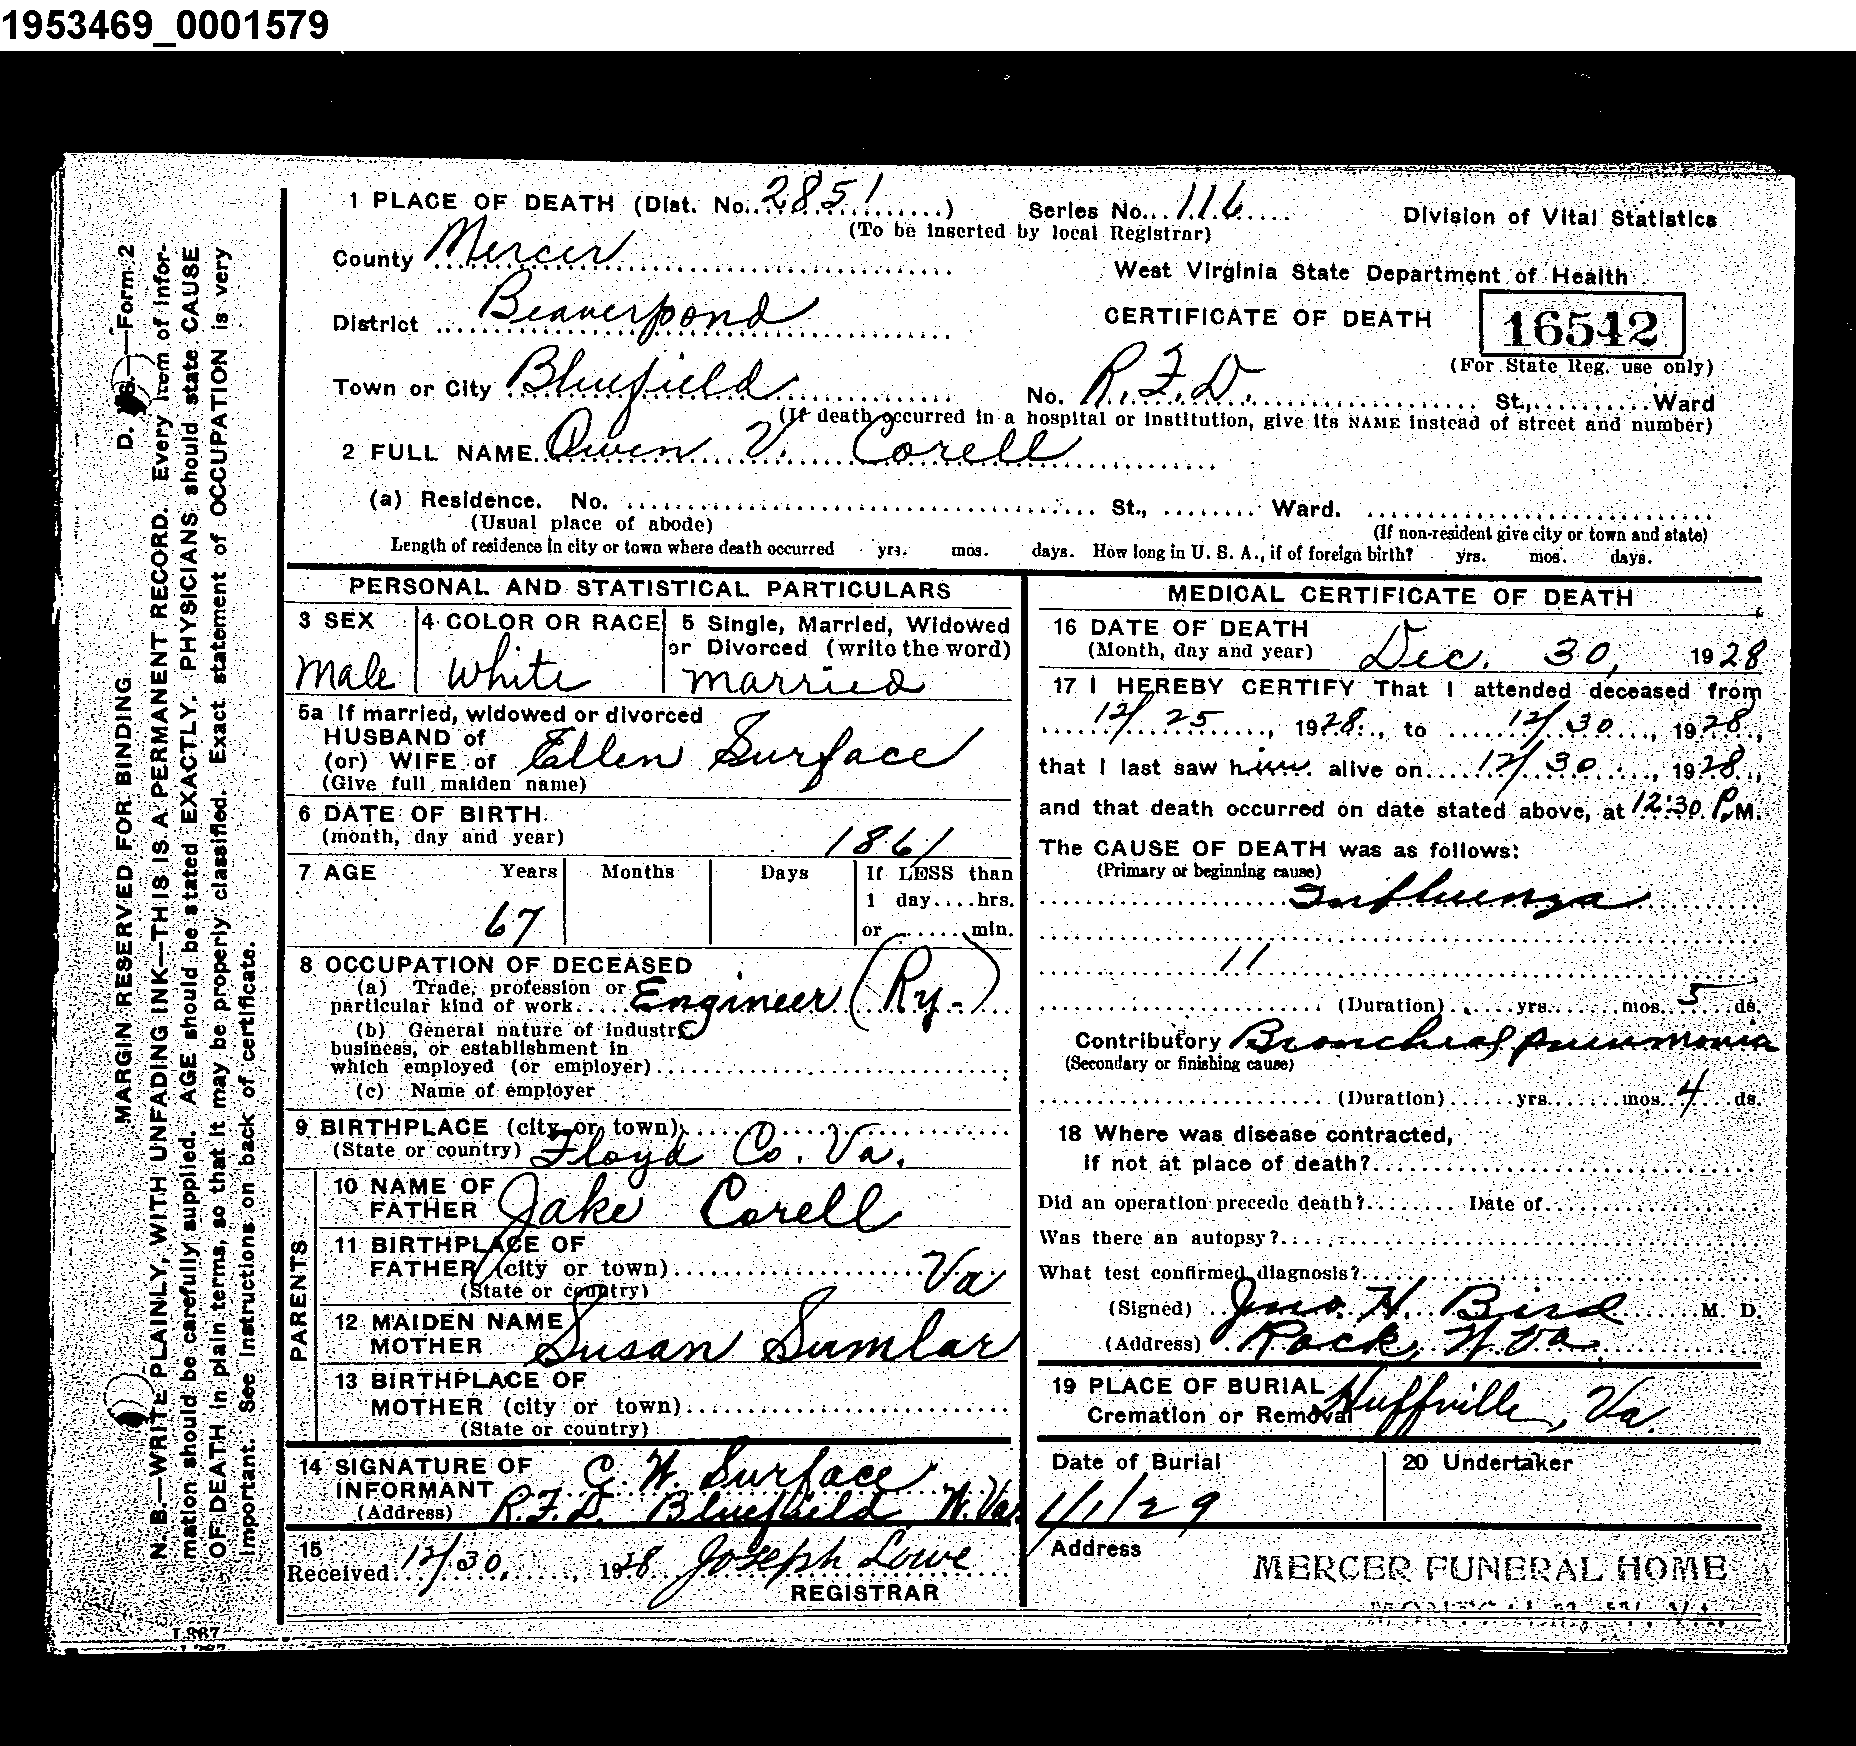 1953469_0001579
1 PLACE OF DEATH (Dist. No. 2851) Series No. 116 Division of Vital Statistics
(To be inserted by local Registrar)
County Mercer
West Virginia State Department of Health
District Beaverpond
CERTIFICATE OF DEATH 16542
(For State Reg. use only)
Town or City Bluefield No. R.F.D. St., Ward
(If death occurred in a hospital or institution, give its NAME instead of street and number)
2 FULL NAME Owen V. Corell
(a) Residence. No. St., Ward.
(Usual place of abode) (If non-resident give city or town and state)
Length of residence in city or town where death occurred yrs. mos. days. How long in U. S. A., if of foreign birth? yrs. mos. days.
PERSONAL AND STATISTICAL PARTICULARS
3 SEX Male
4 COLOR OR RACE White
5 Single, Married, Widowed
or Divorced (write the word)
Married
5a If married, widowed or divorced
HUSBAND of
(or) WIFE of Ellen Surface
(Give full maiden name)
6 DATE OF BIRTH
(month, day and year) 1861
7 AGE Years Months Days If LESS than
1 day....hrs.
67
or ......min.
8 OCCUPATION OF DECEASED
(a) Trade, profession or
particular kind of work Engineer (Ry.)
(b) General nature of industry
business, or establishment in
which employed (or employer)
(c) Name of employer
9 BIRTHPLACE (city or town)
(State or country) Floyd Co. Va.
PARENTS
10 NAME OF
FATHER Jake Corell
11 BIRTHPLACE OF
FATHER (city or town) Va
(State or country)
12 MAIDEN NAME
MOTHER Susan Sumlar
13 BIRTHPLACE OF
MOTHER (city or town)
(State or country)
14 SIGNATURE OF
INFORMANT G. W. Surface
(Address) R.F.D. Bluefield W. Va.
15
Received 12/30, 1928 Joseph Lowe
REGISTRAR
MEDICAL CERTIFICATE OF DEATH
16 DATE OF DEATH
(Month, day and year) Dec. 30, 1928
17 I HEREBY CERTIFY That I attended deceased from
12/25, 1928, to 12/30, 1928,
that I last saw him alive on 12/30, 1928,
and that death occurred on date stated above, at 12:30 P.M.
The CAUSE OF DEATH was as follows:
(Primary or beginning cause)
Influenza
11
(Duration) yrs. mos. 5 ds.
Contributory Bronchial pneumonia
(Secondary or finishing cause)
(Duration) yrs. mos. 4 ds.
18 Where was disease contracted,
if not at place of death?
Did an operation precede death? Date of
Was there an autopsy?
What test confirmed diagnosis?
(Signed) Jno. H. Bird M. D.
(Address) Rock, W. Va.
19 PLACE OF BURIAL
Cremation or Removal Huffville, Va.
Date of Burial 1/1/29
20 Undertaker
Address
MERCER FUNERAL HOME
D. S.—Form 2
MARGIN RESERVED FOR BINDING
N. B.—WRITE PLAINLY, WITH UNFADING INK—THIS IS A PERMANENT RECORD. Every item of infor-
mation should be carefully supplied. AGE should be stated EXACTLY. PHYSICIANS should state CAUSE
OF DEATH in plain terms, so that it may be properly classified. Exact statement of OCCUPATION is very
important. See instructions on back of certificate.